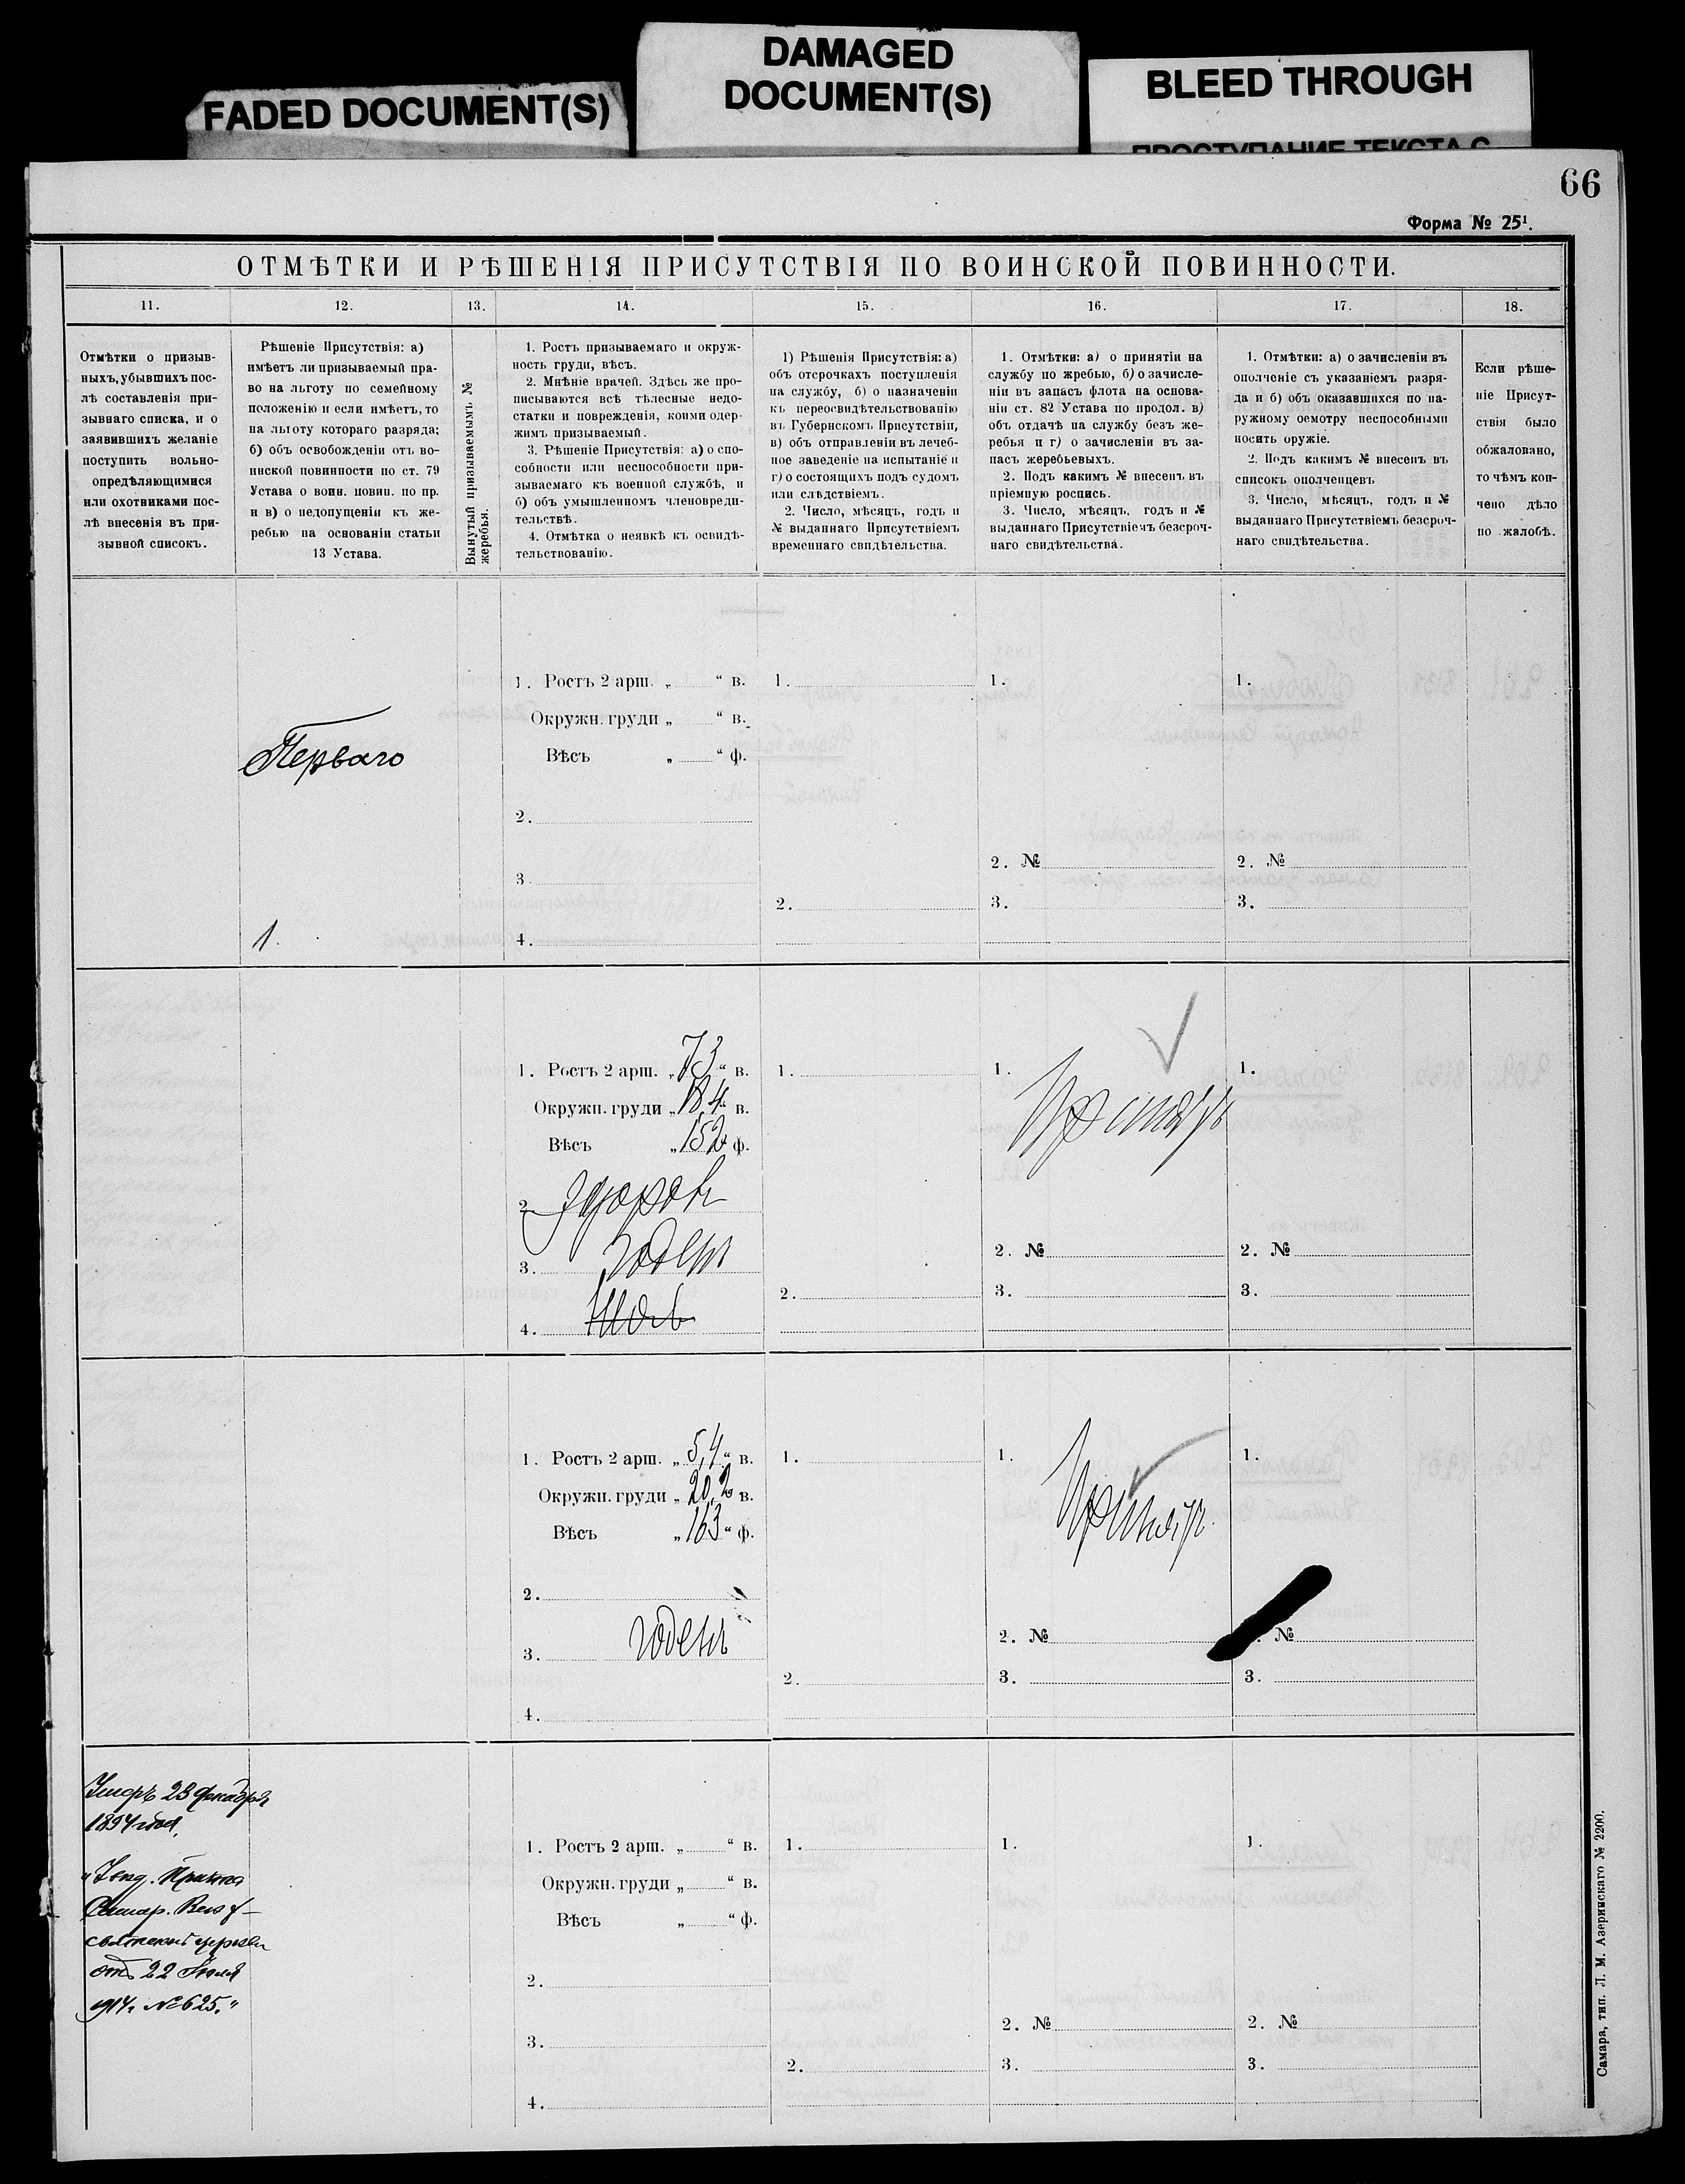 FADED DOCUMENT(S)
DAMAGED
DOCUMENT(S)
BLEED THROUGH
ПРОСТУПАНИЕ ТЕКСТА С
66
Форма № 25¹.
ОТМѢТКИ И РѢШЕНІЯ ПРИСУТСТВІЯ ПО ВОИНСКОЙ ПОВИННОСТИ.
11.
12.
13.
14.
15.
16.
17.
18.
Отмѣтки о призыв-
ныхъ, убывшихъ пос-
лѣ составленія при-
зывнаго списка, и о
заявившихъ желаніе
поступить вольно-
опредѣляющимися
или охотниками пос-
лѣ внесенія въ при-
зывной списокъ.
Рѣшеніе Присутствія: а)
имѣетъ ли призываемый пра-
во на льготу по семейному
положенію и если имѣетъ, то
на льготу котораго разряда;
б) объ освобожденіи отъ во-
инской повинности по ст. 79
Устава о воин. повин. по пр.
и в) о недопущеніи къ же-
ребью на основаніи статьи
13 Устава.
Вынутый призываемымъ №
жеребья.
1. Ростъ призываемаго и окруж-
ность груди, вѣсъ.
2. Мнѣніе врачей. Здѣсь же про-
писываются всѣ тѣлесные недо-
статки и поврежденія, коими одер-
жимъ призываемый.
3. Рѣшеніе Присутствія: а) о спо-
собности или неспособности при-
зываемаго къ военной службѣ, и
б) объ умышленномъ членовреди-
тельствѣ.
4. Отмѣтка о неявкѣ къ освидѣ-
тельствованію.
1) Рѣшенія Присутствія: а)
объ отсрочкахъ поступленія
на службу, б) о назначеніи
къ переосвидѣтельствованію
въ Губернскомъ Присутствіи,
в) объ отправленіи въ лечеб-
ное заведеніе на испытаніе и
г) о состоящихъ подъ судомъ
или слѣдствіемъ.
2. Число, мѣсяцъ, годъ и
№ выданнаго Присутствіемъ
временнаго свидѣтельства.
1. Отмѣтки: а) о принятіи на
службу по жребью, б) о зачисле-
ніи въ запасъ флота на основа-
ніи ст. 82 Устава по продол. в)
объ отдачѣ на службу безъ же-
ребья и г) о зачисленіи въ за-
пасъ жеребьевыхъ.
2. Подъ какимъ № внесенъ въ
пріемную роспись.
3. Число, мѣсяцъ, годъ и №
выданнаго Присутствіемъ безсроч-
наго свидѣтельства.
1. Отмѣтки: а) о зачисленіи въ
ополченіе съ указаніемъ разря-
да и б) объ оказавшихся по на-
ружному осмотру неспособными
носить оружіе.
2. Подъ какимъ № внесенъ въ
списокъ ополченцевъ
3. Число, мѣсяцъ, годъ и №
выданнаго Присутствіемъ безсроч-
наго свидѣтельства.
Если рѣше-
ніе Присут-
ствія было
обжаловано,
то чѣмъ кон-
чено дѣло
по жалобѣ.
Перваго
1.
1. Ростъ 2 арш. „ “ в.
Окружн. груди „ “ в.
Вѣсъ „ “ ф.
2.
3.
4.
1.
2.
1.
2. №
3.
1.
2. №
3.
1. Ростъ 2 арш. „ 73 “ в.
Окружн. груди „ 184 “ в.
Вѣсъ „ 152 “ ф.
2. здоровъ
3. годенъ
4.
1.
2.
1. Принятъ
2. №
3.
1.
2. №
3.
1. Ростъ 2 арш. „ 5,4 “ в.
Окружн. груди „ 20,2 “ в.
Вѣсъ „ 163 “ ф.
2.
3. годенъ
4.
1.
2.
1. Принятъ.
2. №
3.
1.
№
3.
Умеръ 23 декабря
1894 года,
„Увѣд. Причта
Самар. Всѣх-
святской церкви
отъ 22 Іюля
1914г. № 625.“
1. Ростъ 2 арш. „ “ в.
Окружн. груди „ “ в.
Вѣсъ „ “ ф.
2.
3.
4.
1.
2.
1.
2. №
3.
1.
2. №
3.
Самара, тип. Л. М. Азеринскаго № 2200.